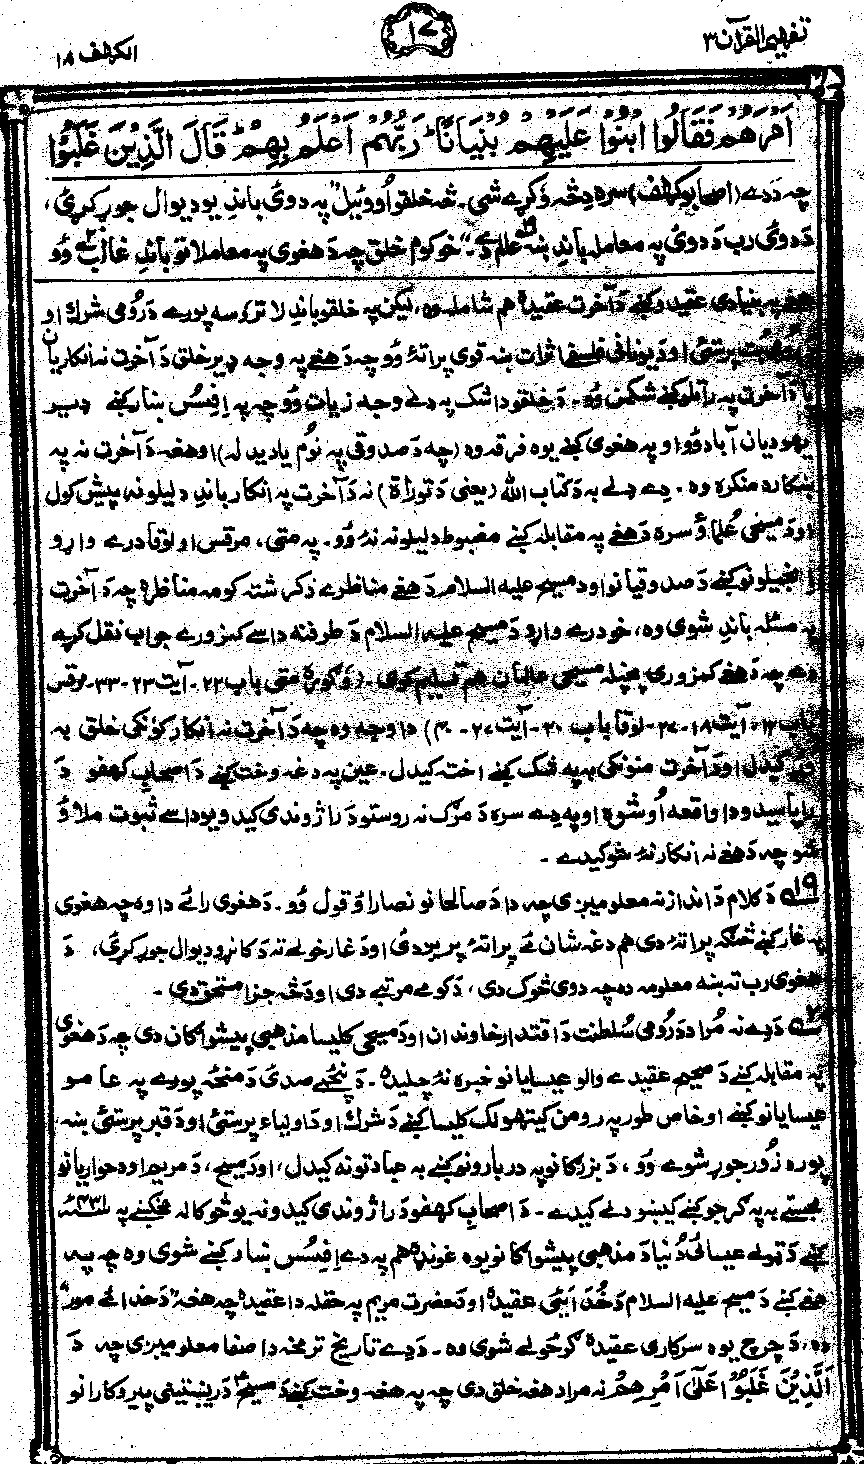 تفهیم القرآن ۳
۱۷
الکهف ۱۸
اَمْرَهُمْ فَقَالُوا ابْنُوْا عَلَيْهِمْ بُنْيَانًا ؕ رَبُّهُمْ اَعْلَمُ بِهِمْ ؕ قَالَ الَّذِيْنَ غَلَبُوْا
چہ دَدے (اصحابو کهف) سره دِ څہ وَکړے شی۔ څہ خلقو اُووئیل "پہ دوئ باندِ یو دیوال جوړ کړئ،
دَدوئ رب دَدوئ پہ معاملہ باندِ ښہ علم دے۔" خو کوم خلق چہ دَ هغوی پہ معاملاتو باندِ غالب وُو
هغے پہ بنیادی عقیدو کښے دَ آخرت عقیده هم شاملہ وه، لیکن پہ خلقو باندِ لا تر اوسہ پورے دَ رُومی شرک او
بُت پرستئ او دَ یونانی فلسفے اثرات ښہ قوی پراتۀ وُو چہ دَ هغے پہ وجہ ډیر خلق دَ آخرت نہ انکاریان
یا دَ آخرت پہ راتلو کښے شکمن وُو۔ دَ خلقو دا شک پہ دے وجہ زیات وُو چہ پہ اِفِسُس ښار کښے ډیر
یهودیان آباد وُو او پہ هغوی کښے یوه فرقہ وه (چہ دَ صدوقی پہ نُوم یادیدلہ) او هغہ دَ آخرت نہ پہ
ښکاره منکره وه۔ دِے ډلے بہ دَ کتاب الله (یعنی دَ توراة) نہ دَ آخرت پہ انکار باندِ دلیلونہ پیش کول
او دَ مسیحی عُلماؤ سره دَ هغے پہ مقابلہ کښے مضبوط دلیلونہ نۀ وُو۔ پہ متی، مرقس او لوقا درے واړو
انجیلونو کښے دَ صدوقیانو او دَ مسیح علیہ السلام دَ هغے مناظرے ذکر شتہ کومہ مناظره چہ دَ آخرت
پہ مسئلہ باندِ شوی وه، خو درے واړو دَ مسیح علیہ السلام دَ طرفنہ داسے کمزورے جواب نقل کړے
دے چہ دَ هغے کمزوری پخپلہ مسیحی عالمان هم تسلیم کوی۔ (وَ گوره متی باب ۲۲۔ آیت ۲۳۔۳۳۔ مرقس
باب ۱۲۔ آیت ۱۸۔۲۷۔ لوقا باب ۲۰۔ آیت ۲۷۔۴۰) دا وجہ وه چہ دَ آخرت نہ انکار کوُنکی خلق پہ
کیدل او دَ آخرت منونکی بہ پہ شک کښے اختہ کیدل۔ عین پہ دغہ وخت کښے دَ اصحابِ کهفو دَ
راپاسیدو دا واقعہ اُوشوه او پہ دِے سره دَ مرګ نہ روستو دَ راژوندی کیدو یو داسے ثبوت ملاؤ
شو چہ دَ هغے نہ انکار نۀ شو کیدے۔
۱۹ دَ کلام دَ انداز نہ معلومیږی چہ دا دَ صالحانو نصاراؤ قول وُو۔ دَ هغوی رائے دا وه چہ هغوی
پہ غار کښے څنګہ پراتۀ دی هم دغہ شان ئے پراتۀ پریږدئ او دَ غار خولے تہ دَ کاڼو دیوال جوړ کړئ، دَ
هغوی رب تہ ښہ معلومہ ده چہ دوی څوک دی، دَ کومے مرتبے دی او دَ څہ جزا مستحق دی۔
۲۰ دَدِے نہ مُراد دَ رُومی سُلطنت دَ اقتدار خاوندان او دَ مسیحی کلیسا مذهبی پیشواګان دی چہ دَ هغوی
پہ مقابلہ کښے دَ صحیح عقیدے والو عیسایانو خبره نۀ چلیده۔ دَ پنځمے صدئ دَ منځہ پورے پہ عامو
عیسایانو کښے او خاص طور پہ رومن کیتھولک کلیسا کښے دَ شرک او دَ اولیاء پرستئ او دَ قبر پرستئ ښہ
پوره زُور جوړ شوے وُو، دَ بزرګانو پہ دربارونو کښے بہ عبادتونہ کیدل، او دَ مسیح، دَ مریم او دَ حواریانو
مجسمے بہ پہ ګرجو کښے کیښودلے کیدے۔ دَ اصحابِ کهفو دَ راژوندی کیدو نہ یو څو کالہ مخکښے پہ ۴۳۱ء
کښے دَ ټولے عیسائی دُنیا دَ مذهبی پیشواګانو یوه غونډه هم پہ دے اِفِسُس ښار کښے شوی وه چہ پہ
هغے کښے دَ مسیح علیہ السلام دَ خُدائی عقیده او دَ حضرت مریم پہ حقلہ دا عقیده چہ هغہ "دَ خدائے مور"
ده، دَ چرچ یوه سرکاری عقیده ګرځولے شوی وه۔ دَدے تاریخ تر مخہ دا صفا معلومیږی چہ دَ
اَلَّذِيْنَ غَلَبُوْا عَلٰى اَمْرِهِمْ نہ مراد هغہ خلق دی چہ پہ هغہ وخت کښے دَ مسیح دَ رښتینی پیروکارانو